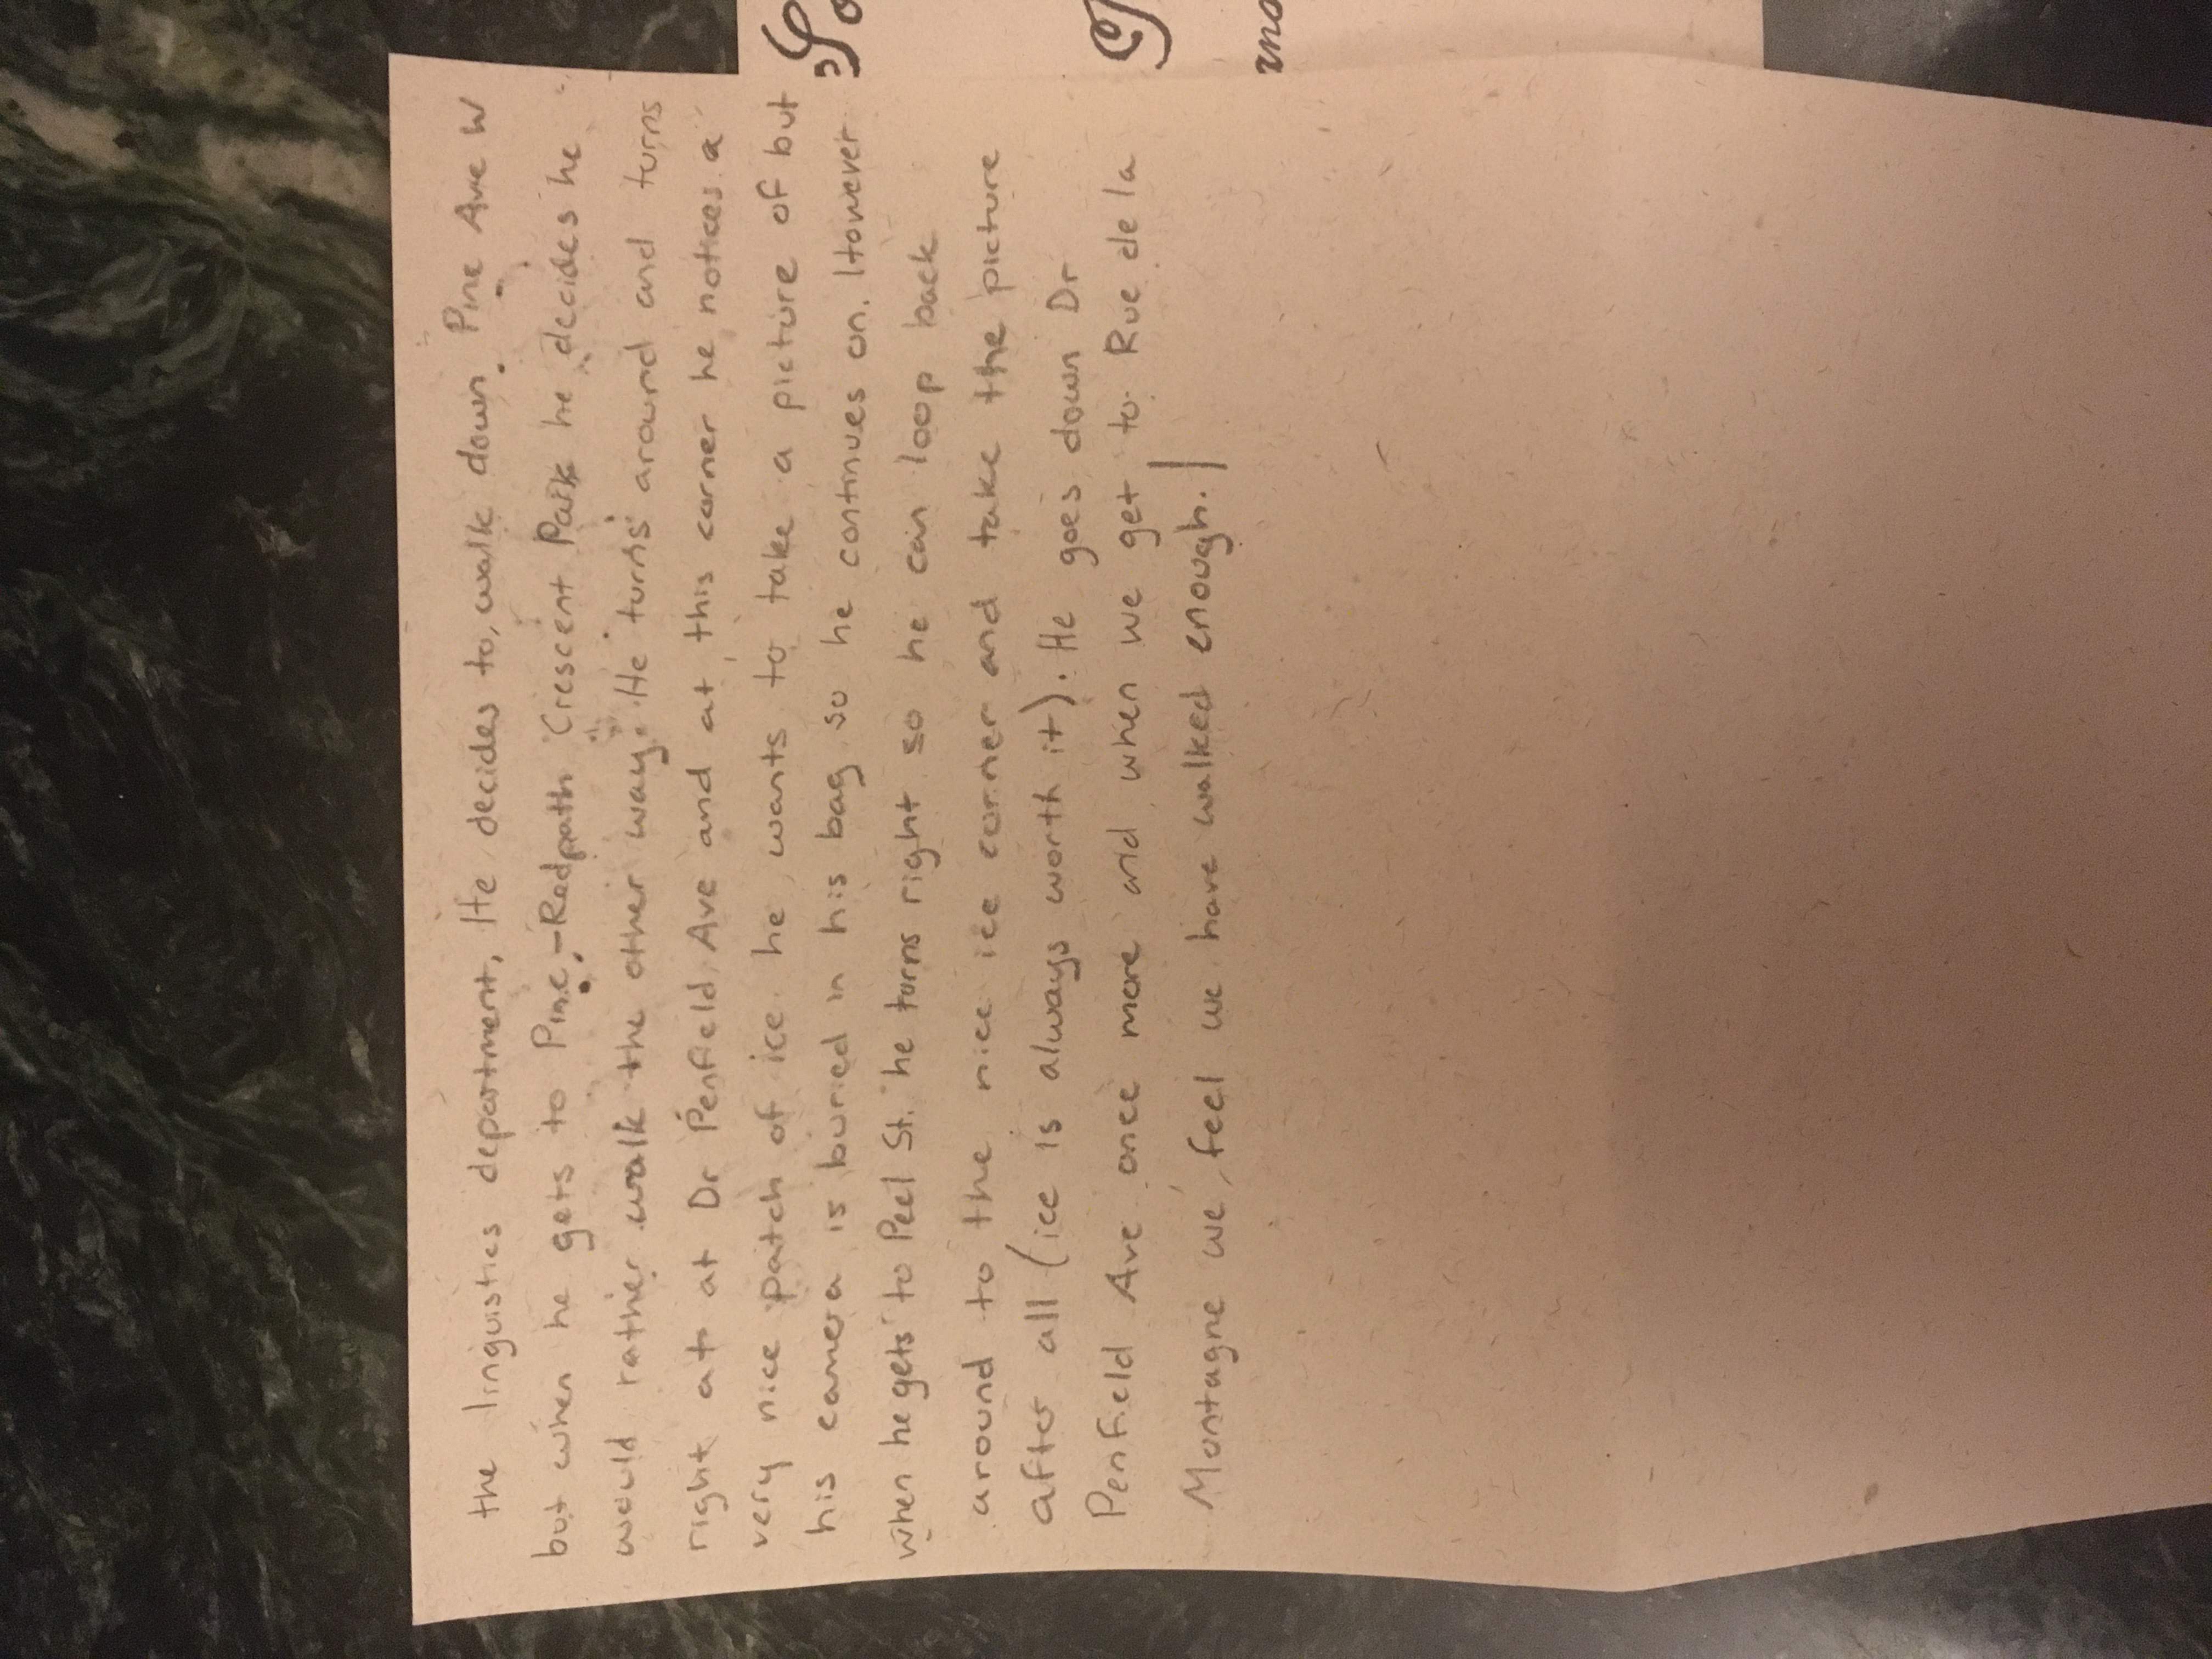 the linguistics department. He decides to walk down Pine Ave W
but when he gets to Pine-Redpath Crescent Park he decides he
would rather walk the other way. He turns around and turns
right at at Dr Penfield Ave and at this corner he notices a
very nice patch of ice he wants to take a picture of but
his camera is buried in his bag so he continues on. However
when he gets to Peel St. he turns right so he can loop back
around to the nice ice corner and take the picture
after all (ice is always worth it). He goes down Dr
Penfield Ave once more and when we get to Rue de la
Montagne we feel we have walked enough.